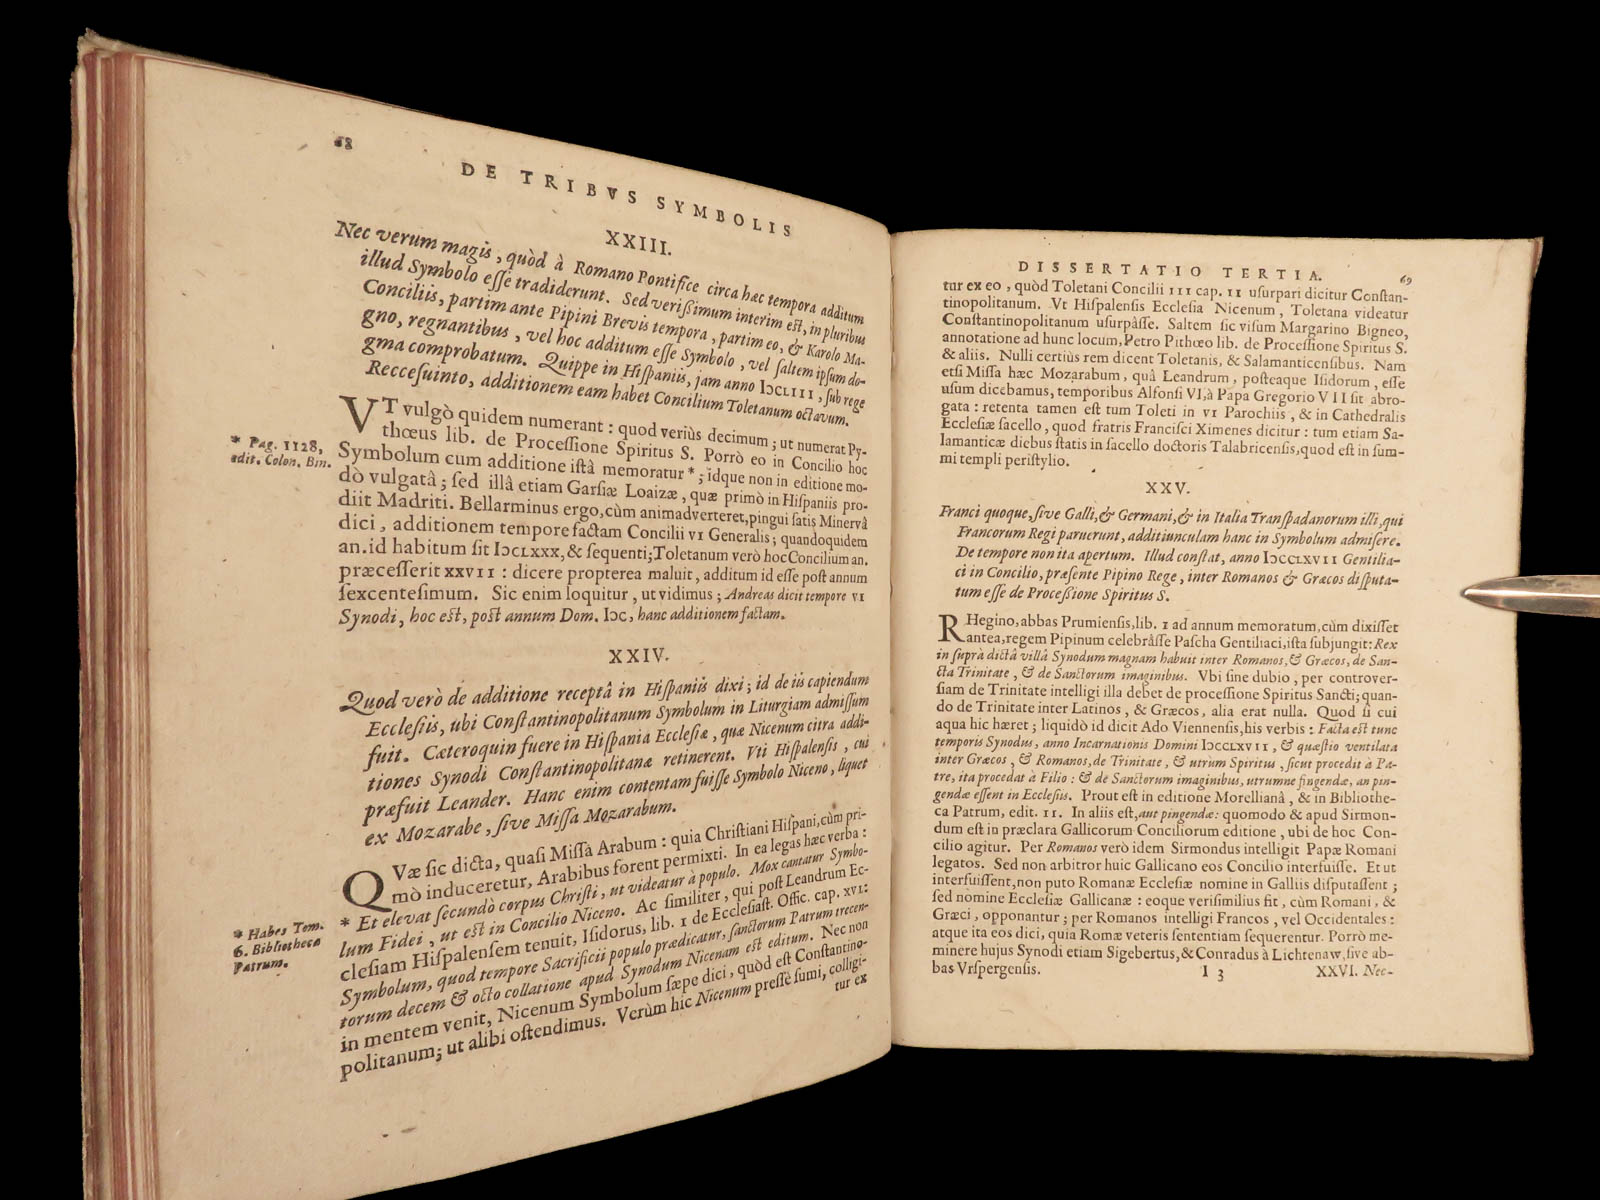 68
DE TRIBVS SYMBOLIS
XXIII.
Nec verum magis, quòd à Romano Pontifice circa hæc tempora additum
illud Symbolo eſſe tradiderunt. Sed veriſsimum interim eſt, in pluribus
Conciliis, partim ante Pipini Brevis tempora, partim eo, & Karolo Ma-
gno, regnantibus, vel hoc additum eſſe Symbolo, vel ſaltem ipſum do-
gma comprobatum. Quippe in Hiſpaniis, jam anno IↃCLIII, ſub rege
Recceſuinto, additionem eam habet Concilium Toletanum octavum.
VT vulgò quidem numerant: quod veriùs decimum; ut numerat Py-
thœus lib. de Proceſſione Spiritus S. Porrò eo in Concilio hoc
* Pag. 1128,
edit. Colon. Bin.
Symbolum cum additione iſtâ memoratur *; idque non in editione mo-
dò vulgatâ; ſed illâ etiam Garſiæ Loaizæ, quæ primò in Hiſpaniis pro-
diit Madriti. Bellarminus ergo, cùm animadverteret, pingui ſatis Minervâ
dici, additionem tempore factam Concilii VI Generalis; quandoquidem
an. id habitum ſit IↃCLXXX, & ſequenti; Toletanum verò hoc Concilium an.
præceſſerit XXVII: dicere propterea maluit, additum id eſſe poſt annum
ſexcenteſimum. Sic enim loquitur, ut vidimus; Andreas dicit tempore VI
Synodi, hoc eſt, poſt annum Dom. IↃC, hanc additionem factam.
XXIV.
Quod verò de additione receptâ in Hiſpaniis dixi; id de iis capiendum
Eccleſiis, ubi Conſtantinopolitanum Symbolum in Liturgiam admiſſum
fuit. Cæteroquin fuere in Hiſpania Eccleſiæ, quæ Nicenum citra addi-
tiones Synodi Conſtantinopolitanæ retinerent. Vti Hiſpalenſis, cui
præfuit Leander. Hanc enim contentam fuiſſe Symbolo Niceno, liquet
ex Mozarabe, ſive Miſſa Mozarabum.
QVæ ſic dicta, quaſi Miſſà Arabum: quia Chriſtiani Hiſpani, cùm pri-
mò induceretur, Arabibus forent permixti. In ea legas hæc verba:
* Habes Tom.
6. Bibliotheca
Patrum.
* Et elevat ſecundò corpus Chriſti, ut videatur à populo. Mox cantatur Symbo-
lum Fidei, ut eſt in Concilio Niceno. Ac ſimiliter, qui poſt Leandrum Ec-
cleſiam Hiſpalenſem tenuit, Iſidorus, lib. 1 de Eccleſiaſt. Offic. cap. XVI:
Symbolum, quod tempore Sacrificii populo prædicatur, ſanctorum Patrum trecen-
torum decem & octo collatione apud Synodum Nicenam eſt editum. Nec non
in mentem venit, Nicenum Symbolum ſæpe dici, quòd eſt Conſtantino-
politanum; ut alibi oſtendimus. Verùm hic Nicenum preſſè ſumi, colligi-
tur ex
DISSERTATIO TERTIA.
69
tur ex eo, quòd Toletani Concilii III cap. II uſurpari dicitur Conſtan-
tinopolitanum. Vt Hiſpalenſis Eccleſia Nicenum, Toletana videatur
Conſtantinopolitanum uſurpâſſe. Saltem ſic viſum Margarino Bigneo,
annotatione ad hunc locum, Petro Pithœo lib. de Proceſſione Spiritus S.
& aliis. Nulli certiùs rem dicent Toletanis, & Salamanticenſibus. Nam
etſi Miſſa hæc Mozarabum, quâ Leandrum, poſteaque Iſidorum, eſſe
uſum dicebamus, temporibus Alfonſi VI, à Papa Gregorio VII ſit abro-
gata: retenta tamen eſt tum Toleti in VI Parochiis, & in Cathedralis
Eccleſiæ ſacello, quod fratris Franciſci Ximenes dicitur: tum etiam Sa-
lamanticæ diebus ſtatis in ſacello doctoris Talabricenſis, quod eſt in ſum-
mi templi periſtylio.
XXV.
Franci quoque, ſive Galli, & Germani, & in Italia Tranſpadanorum illi, qui
Francorum Regi paruerunt, additiunculam hanc in Symbolum admiſere.
De tempore non ita apertum. Illud conſtat, anno IↃCCLXVII Gentilia-
ci in Concilio, præſente Pipino Rege, inter Romanos & Græcos diſputa-
tum eſſe de Proceſsione Spiritus S.
RHegino, abbas Prumienſis, lib. 1 ad annum memoratum, cùm dixiſſet
antea, regem Pipinum celebrâſſe Paſcha Gentiliaci, iſta ſubjungit: Rex
in ſuprà dictâ villâ Synodum magnam habuit inter Romanos, & Græcos, de San-
cta Trinitate, & de Sanctorum imaginibus. Vbi ſine dubio, per controver-
ſiam de Trinitate intelligi illa debet de proceſſione Spiritus Sancti; quan-
do de Trinitate inter Latinos, & Græcos, alia erat nulla. Quod ſi cui
aqua hic hæret; liquidò id dicit Ado Viennenſis, his verbis: Facta eſt tunc
temporis Synodus, anno Incarnationis Domini IↃCCLXVII, & quæſtio ventilata
inter Græcos, & Romanos, de Trinitate, & utrùm Spiritus, ſicut procedit à Pa-
tre, ita procedat à Filio: & de Sanctorum imaginibus, utrumne fingendæ, an pin-
gendæ eſſent in Eccleſiis. Prout eſt in editione Morellianâ, & in Bibliothe-
ca Patrum, edit. II. In aliis eſt, aut pingendæ: quomodo & apud Sirmon-
dum eſt in præclara Gallicorum Conciliorum editione, ubi de hoc Con-
cilio agitur. Per Romanos verò idem Sirmondus intelligit Papæ Romani
legatos. Sed non arbitror huic Gallicano eos Concilio interfuiſſe. Et ut
interfuiſſent, non puto Romanæ Eccleſiæ nomine in Galliis diſputaſſent;
ſed nomine Eccleſiæ Gallicanæ: eoque veriſimilius fit, cùm Romani, &
Græci, opponantur; per Romanos intelligi Francos, vel Occidentales:
atque ita eos dici, quia Romæ veteris ſententiam ſequerentur. Porrò me-
minere hujus Synodi etiam Sigebertus, & Conradus à Lichtenaw, ſive ab-
bas Vrſpergenſis.
I 3
XXVI. Nec-